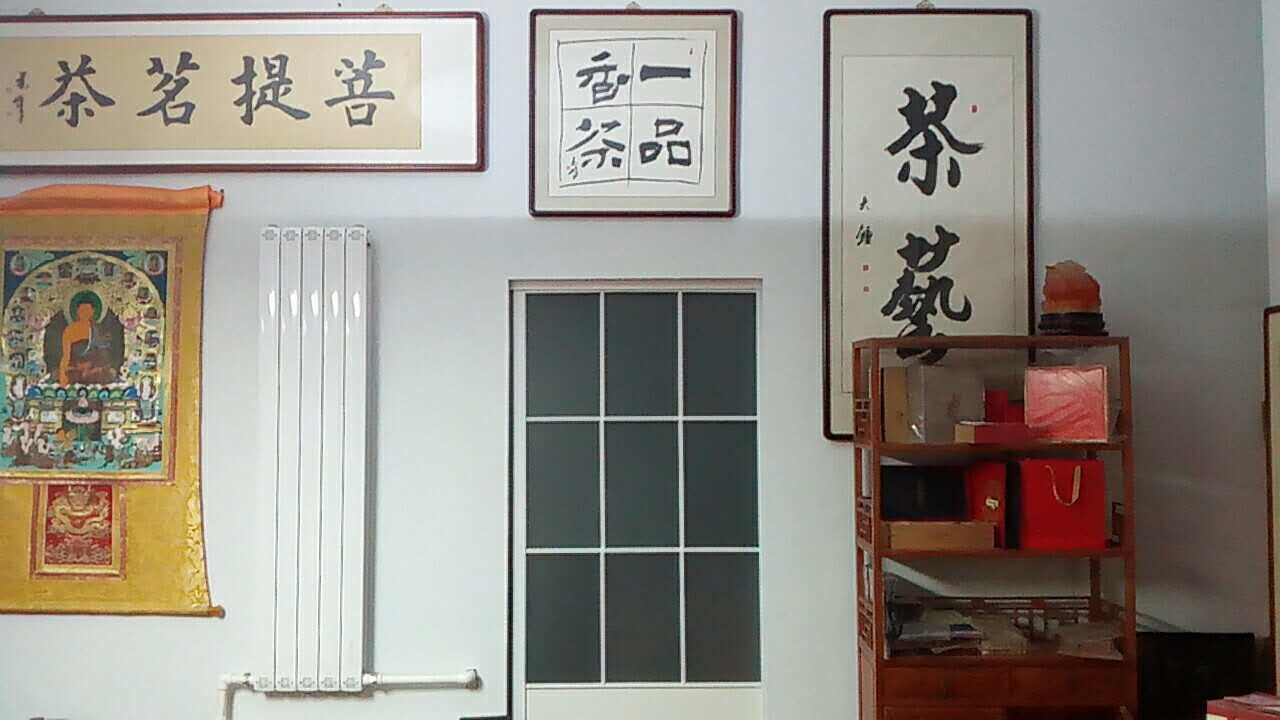 菩提茗茶
一品
香茶
茶藝
大鍾